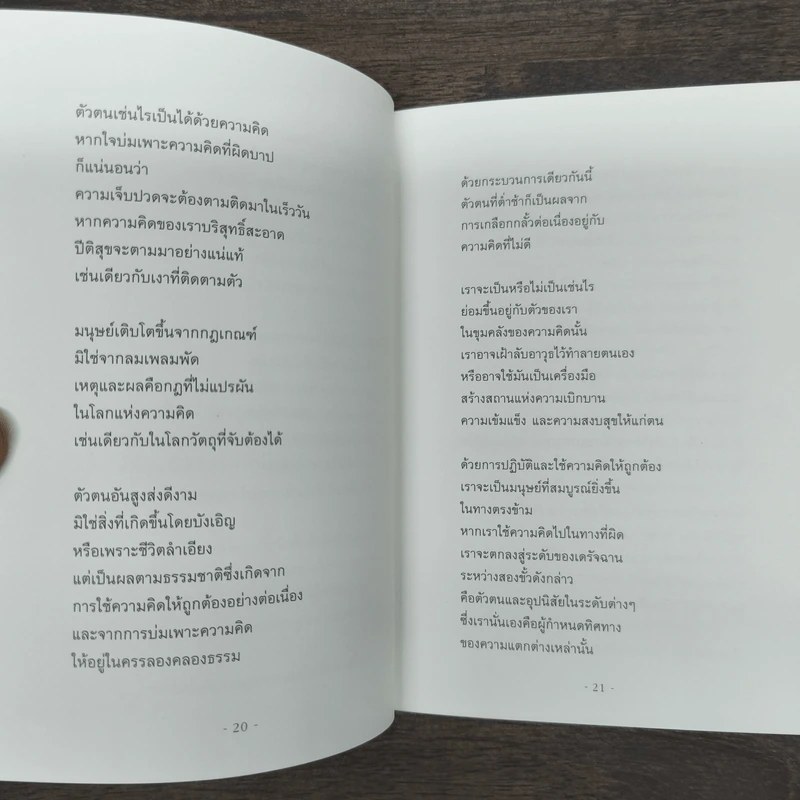 ตัวตนเช่นไรเป็นได้ด้วยความคิด
หากใจบ่มเพาะความคิดที่ผิดบาป
ก็แน่นอนว่า
ความเจ็บปวดจะต้องตามติดมาในเร็ววัน
หากความคิดของเราบริสุทธิ์สะอาด
ปีติสุขจะตามมาอย่างแน่แท้
เช่นเดียวกับเงาที่ติดตามตัว
มนุษย์เติบโตขึ้นจากกฎเกณฑ์
มิใช่จากลมเพลมพัด
เหตุและผลคือกฎที่ไม่แปรผัน
ในโลกแห่งความคิด
เช่นเดียวกับในโลกวัตถุที่จับต้องได้
ตัวตนอันสูงส่งดีงาม
มิใช่สิ่งที่เกิดขึ้นโดยบังเอิญ
หรือเพราะชีวิตลำเอียง
แต่เป็นผลตามธรรมชาติซึ่งเกิดจาก
การใช้ความคิดให้ถูกต้องอย่างต่อเนื่อง
และจากการบ่มเพาะความคิด
ให้อยู่ในครรลองคลองธรรม
- 20 -
ด้วยกระบวนการเดียวกันนี้
ตัวตนที่ต่ำช้าก็เป็นผลจาก
การเกลือกกลั้วต่อเนื่องอยู่กับ
ความคิดที่ไม่ดี
เราจะเป็นหรือไม่เป็นเช่นไร
ย่อมขึ้นอยู่กับตัวของเรา
ในขุมคลังของความคิดนั้น
เราอาจเฝ้าลับอาวุธไว้ทำลายตนเอง
หรืออาจใช้มันเป็นเครื่องมือ
สร้างสถานแห่งความเบิกบาน
ความเข้มแข็ง และความสงบสุขให้แก่ตน
ด้วยการปฏิบัติและใช้ความคิดให้ถูกต้อง
เราจะเป็นมนุษย์ที่สมบูรณ์ยิ่งขึ้น
ในทางตรงข้าม
หากเราใช้ความคิดไปในทางที่ผิด
เราจะตกลงสู่ระดับของเดรัจฉาน
ระหว่างสองขั้วดังกล่าว
คือตัวตนและอุปนิสัยในระดับต่างๆ
ซึ่งเรานั่นเองคือผู้กำหนดทิศทาง
ของความแตกต่างเหล่านั้น
- 21 -